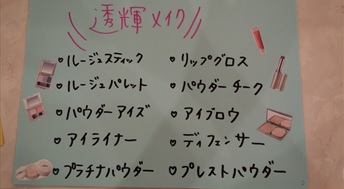 透輝メイク
♡ルージュスティック
♡ルージュパレット
♡パウダーアイズ
♡アイライナー
♡プラチナパウダー
♡リップグロス
♡パウダーチーク
♡アイブロウ
♡ディフェンサー
♡プレストパウダー